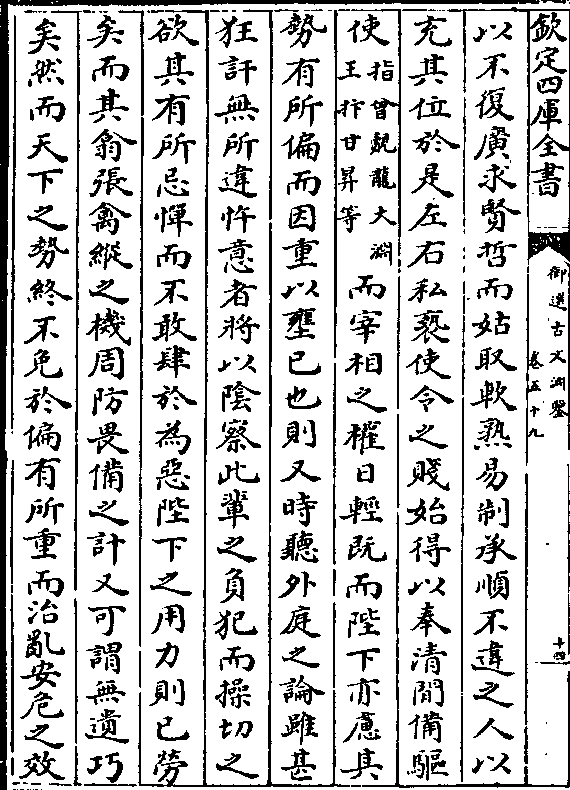 欽定四庫全書
御選古文淵鑒
卷五十九
十四
以不復廣求賢哲而姑取軟熟易制承順不違之人以
充其位於是左右私褻使令之賤始得以奉清閒備驅
使指曾覿龍大淵王抃甘昇等而宰相之權日輕既而陛下亦慮其
勢有所偏而因重以壅已也則又時聽外庭之論雖甚
狂訐無所違忤意者將以陰察此輩之負犯而操切之
欲其有所忌憚而不敢肆於為惡陛下之用力則已勞
矣而其翕張禽縱之機周防畏備之計又可謂無遺巧
矣然而天下之勢終不免於偏有所重而治亂安危之效